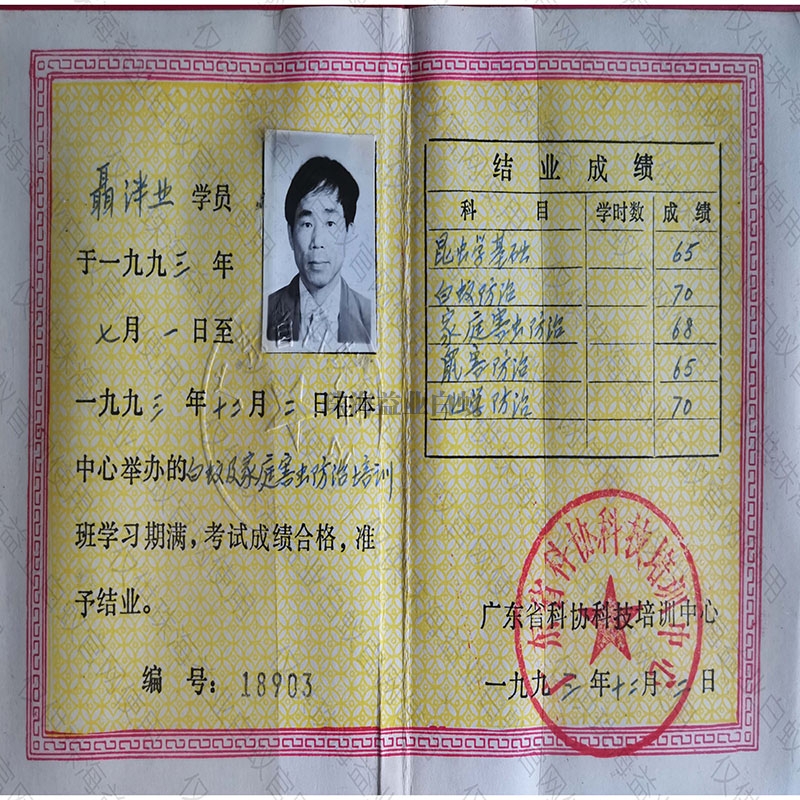 聶沣业 学员
于一九九三年
七月一日至
一九九三年十二月二日在本
中心举办的白蚁及家庭害虫防治培训
班学习期满，考试成绩合格，准
予结业。
编号：18903
结业成绩
科目 学时数 成绩
昆虫学基础 65
白蚁防治 70
家庭害虫防治 68
鼠害防治 65
化学防治 70
广东省科协科技培训中心
一九九三年十二月二日
广东省科协科技培训中心
珠海益业白蚁